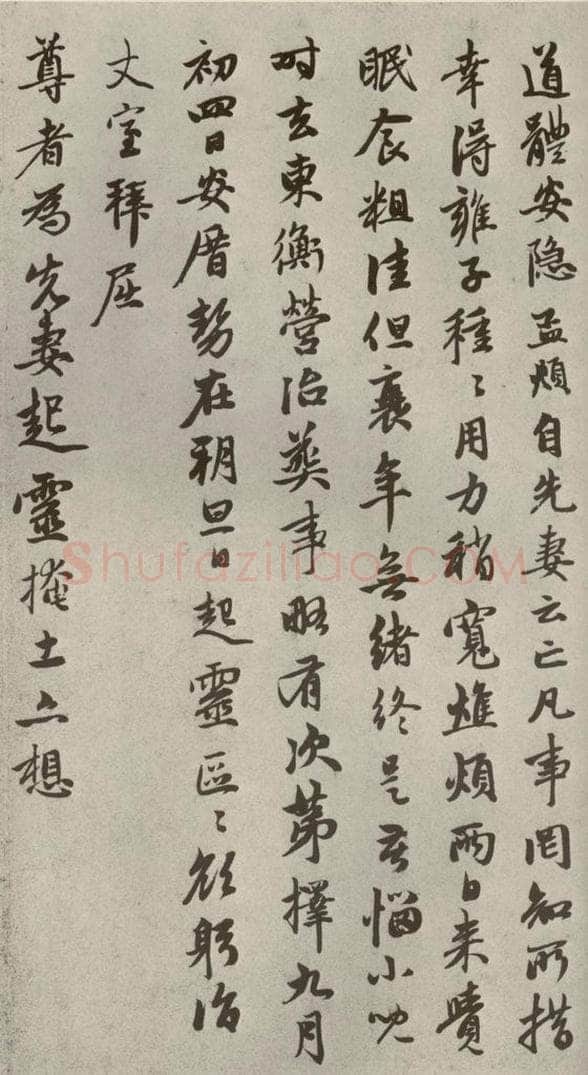 道體安隐孟頫自先妻云亡凡事罔知所措
幸得雍子種〻用力稍寬燋煩兩日来覺
眠食粗佳但衰年無緒終是苦惱小兒
时去東衡營治葬事略有次第擇九月
初四日安厝勢在朔旦日起靈區〻欲躬詣
丈室拜屈
尊者為先妻起靈掩土亦想
Shufaziliao.COM